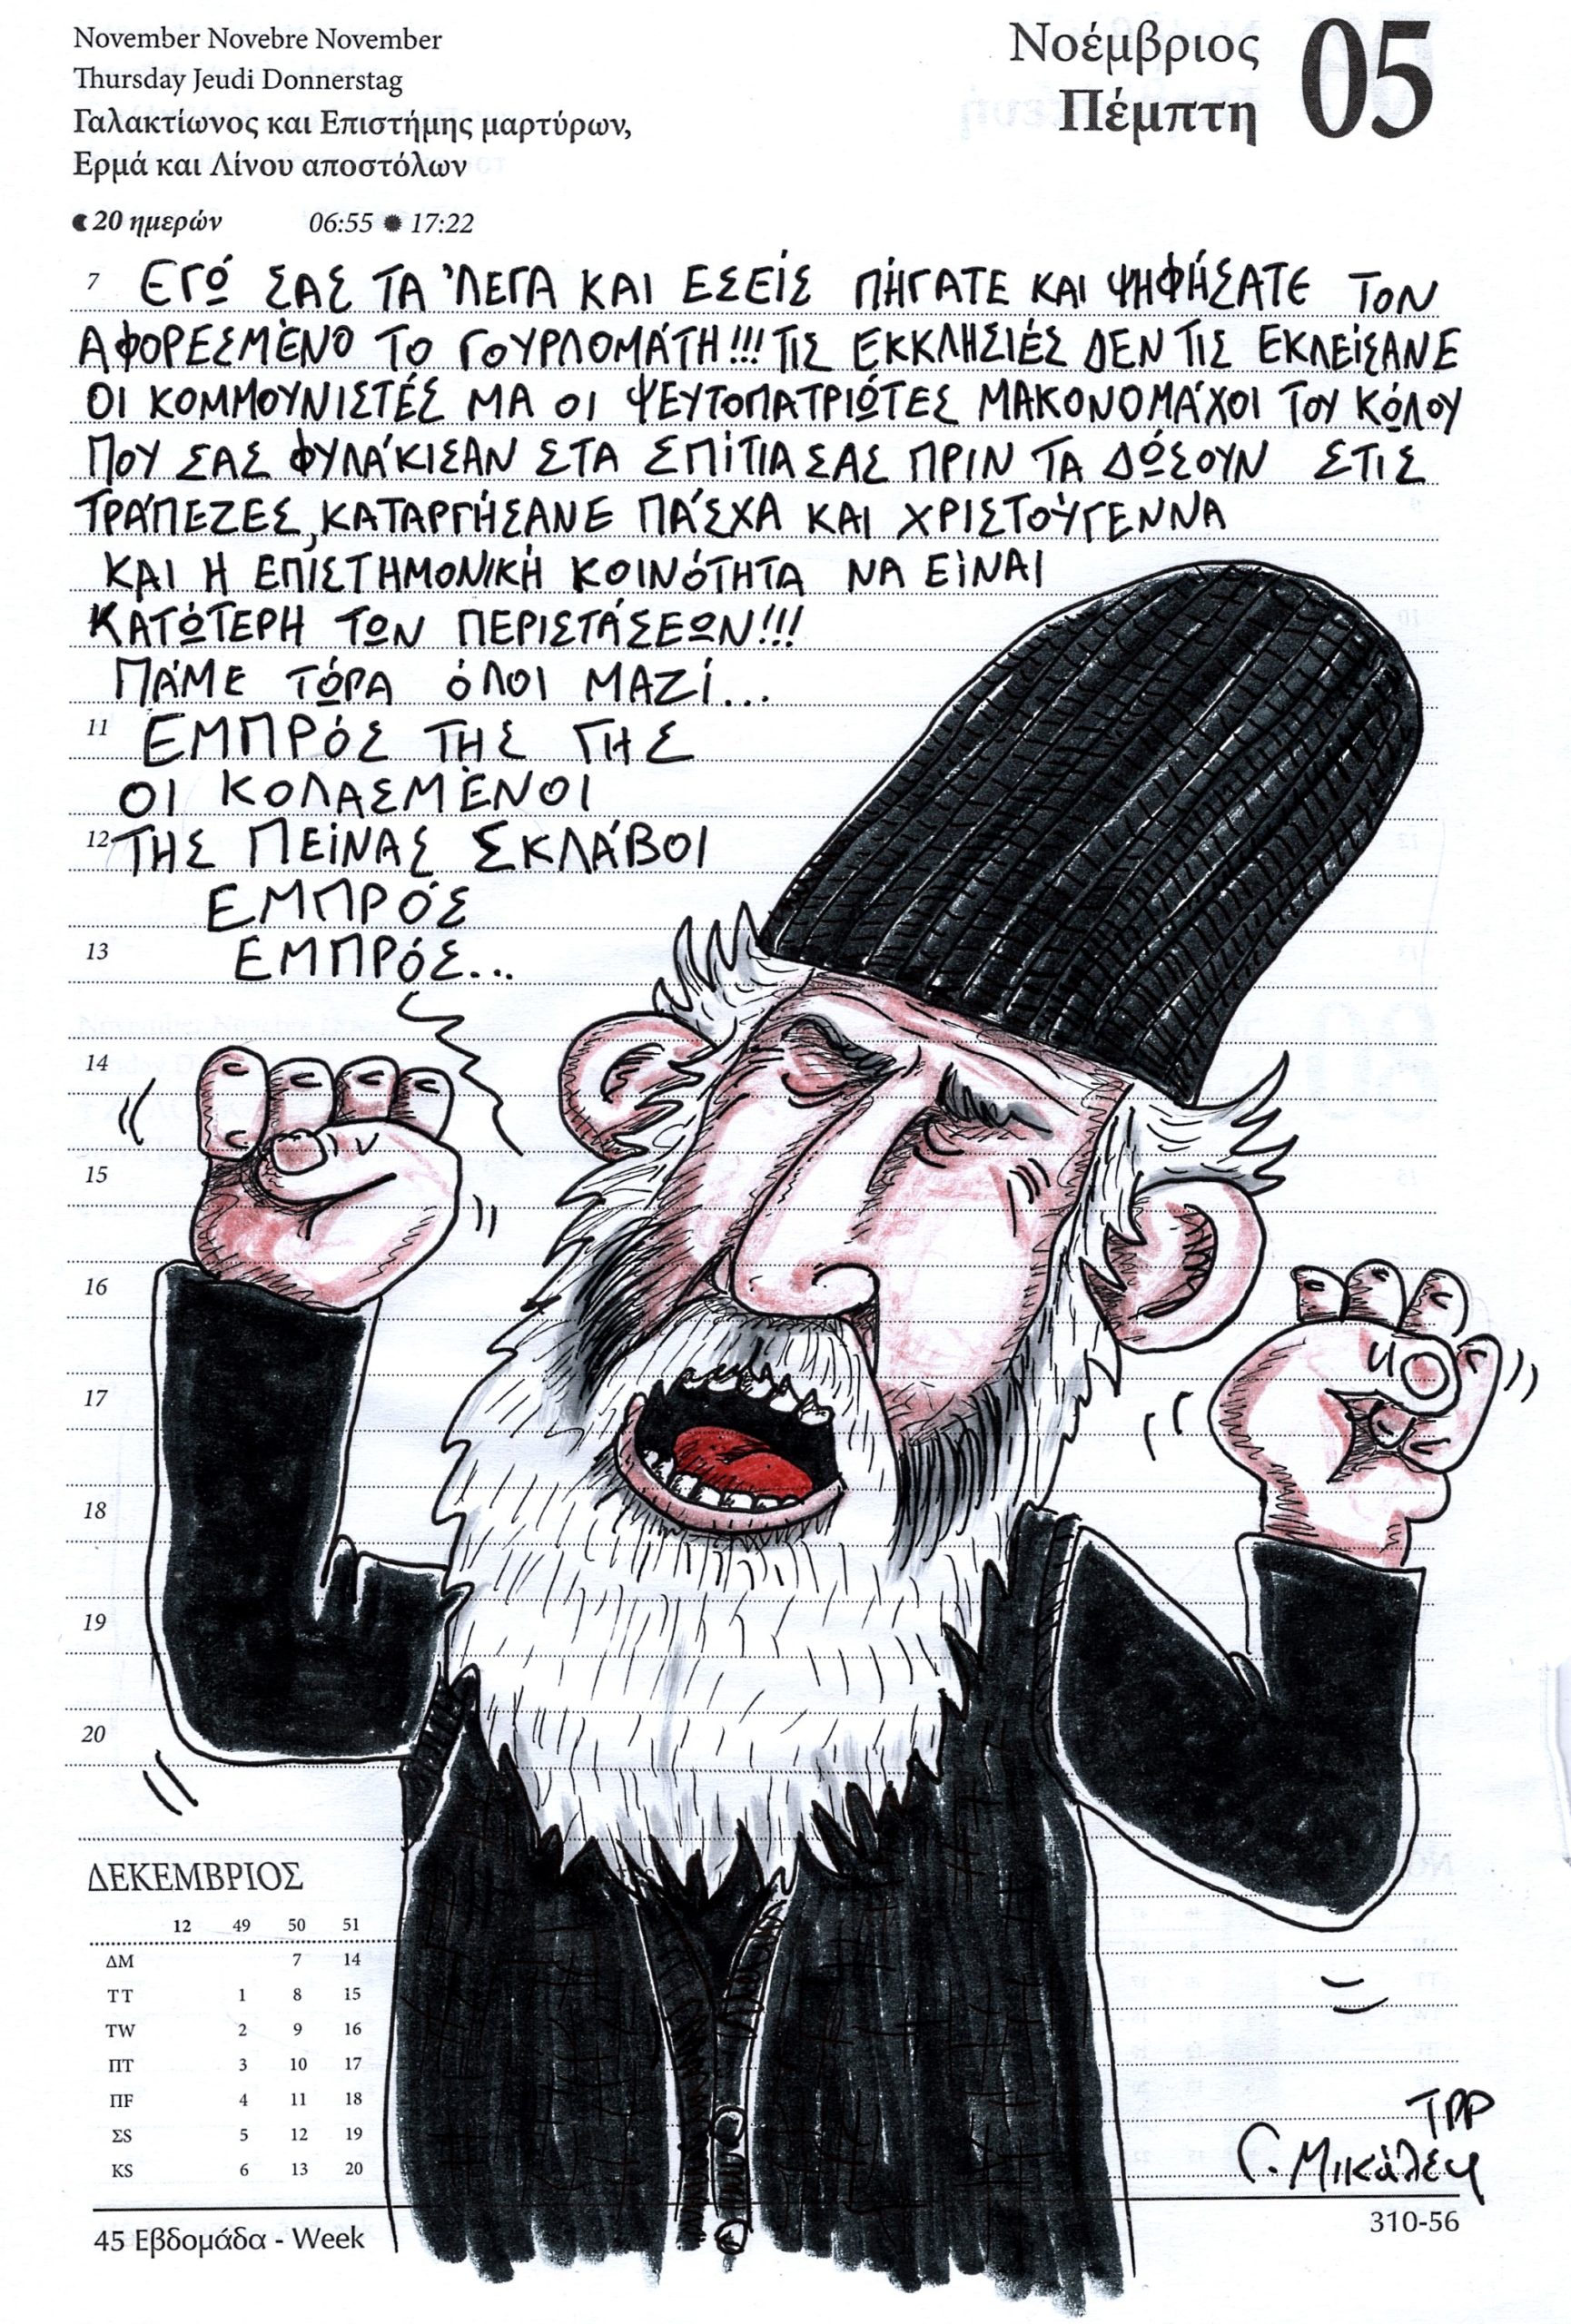 November Novebre November
Thursday Jeudi Donnerstag
Γαλακτίωνος και Επιστήμης μαρτύρων,
Ερμά και Λίνου αποστόλων
20 ημερών 06:55 17:22
Νοέμβριος 05
Πέμπτη
7 ΕΓΏ ΣΑΣ ΤΑ 'ΛΕΓΑ ΚΑΙ ΕΣΕΊΣ ΠΉΓΑΤΕ ΚΑΙ ΨΗΦΉΣΑΤΕ ΤΟΝ
ΑΦΟΡΕΣΜΈΝΟ ΤΟ ΓΟΥΡΛΟΜΆΤΗ!!! ΤΙΣ ΕΚΚΛΗΣΙΈΣ ΔΕΝ ΤΙΣ ΕΚΛΕΊΣΑΝΕ
ΟΙ ΚΟΜΜΟΥΝΙΣΤΈΣ ΜΑ ΟΙ ΨΕΥΤΟΠΑΤΡΙΏΤΕΣ ΜΑΚΟΝΟΜΆΧΟΙ ΤΟΥ ΚΏΛΟΥ
ΠΟΥ ΣΑΣ ΦΥΛΆΚΙΣΑΝ ΣΤΑ ΣΠΊΤΙΑ ΣΑΣ ΠΡΙΝ ΤΑ ΔΏΣΟΥΝ ΣΤΙΣ
ΤΡΆΠΕΖΕΣ, ΚΑΤΑΡΓΉΣΑΝΕ ΠΆΣΧΑ ΚΑΙ ΧΡΙΣΤΟΎΓΕΝΝΑ
ΚΑΙ Η ΕΠΙΣΤΗΜΟΝΙΚΉ ΚΟΙΝΌΤΗΤΑ ΝΑ ΕΊΝΑΙ
ΚΑΤΏΤΕΡΗ ΤΩΝ ΠΕΡΙΣΤΆΣΕΩΝ!!!
ΠΆΜΕ ΤΏΡΑ ΌΛΟΙ ΜΑΖΊ...
11 ΕΜΠΡΌΣ ΤΗΣ ΓΗΣ
ΟΙ ΚΟΛΑΣΜΈΝΟΙ
12 ΤΗΣ ΠΕΊΝΑΣ ΣΚΛΆΒΟΙ
ΕΜΠΡΌΣ
13 ΕΜΠΡΌΣ...
14
15
16
17
18
19
20
ΔΕΚΕΜΒΡΙΟΣ
12 49 50 51
ΔΜ 7 14
ΤT 1 8 15
ΤW 2 9 16
ΠΤ 3 10 17
ΠF 4 11 18
ΣS 5 12 19
ΚS 6 13 20
ΤΡΡ
Γ. Μικάλεφ
45 Εβδομάδα - Week
310-56